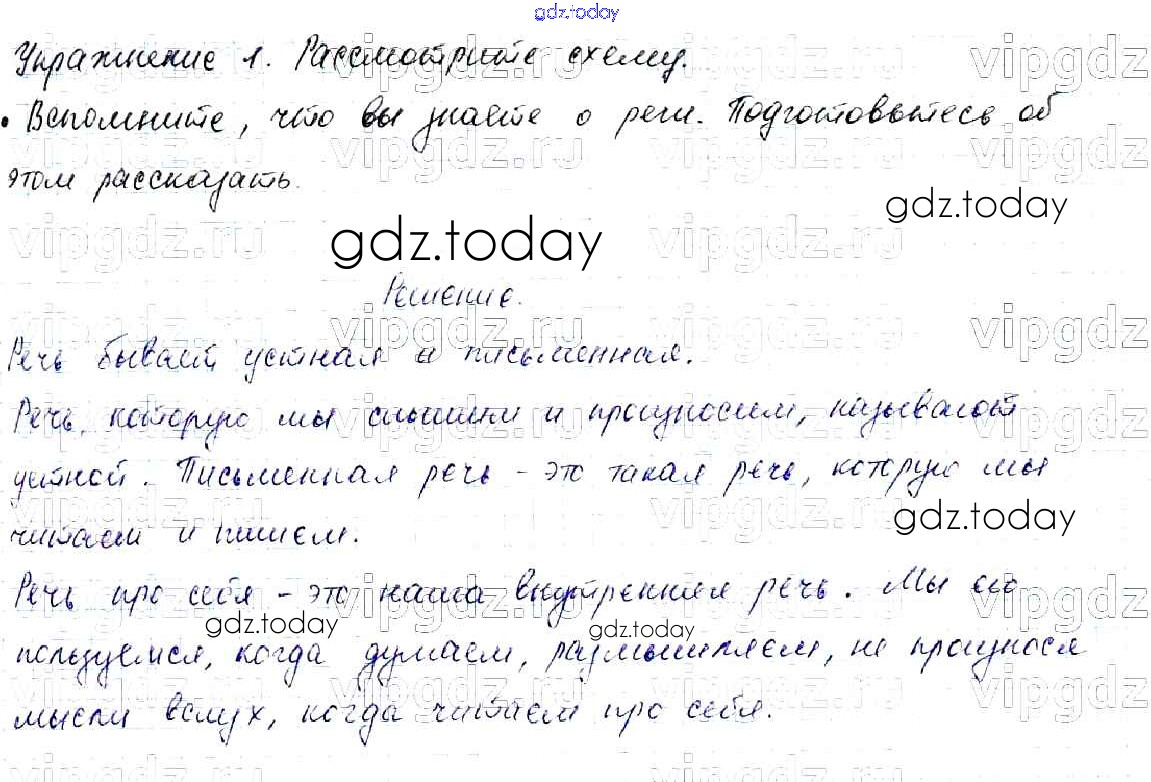 gdz.today
Упражнение 1. Рассмотрите схему.
• Вспомните, что вы знаете о речи. Подготовьтесь об
этом рассказать.
gdz.today
gdz.today
Решение.
Речь бывает устная и письменная.
Речь, которую мы слышим и произносим, называют
устной. Письменная речь - это такая речь, которую мы
читаем и пишем.
gdz.today
Речь про себя - это наша внутренняя речь. Мы ею
gdz.today gdz.today
пользуемся, когда думаем, размышляем, не произнося
мысли вслух, когда читаем про себя.
vipgdz.ru